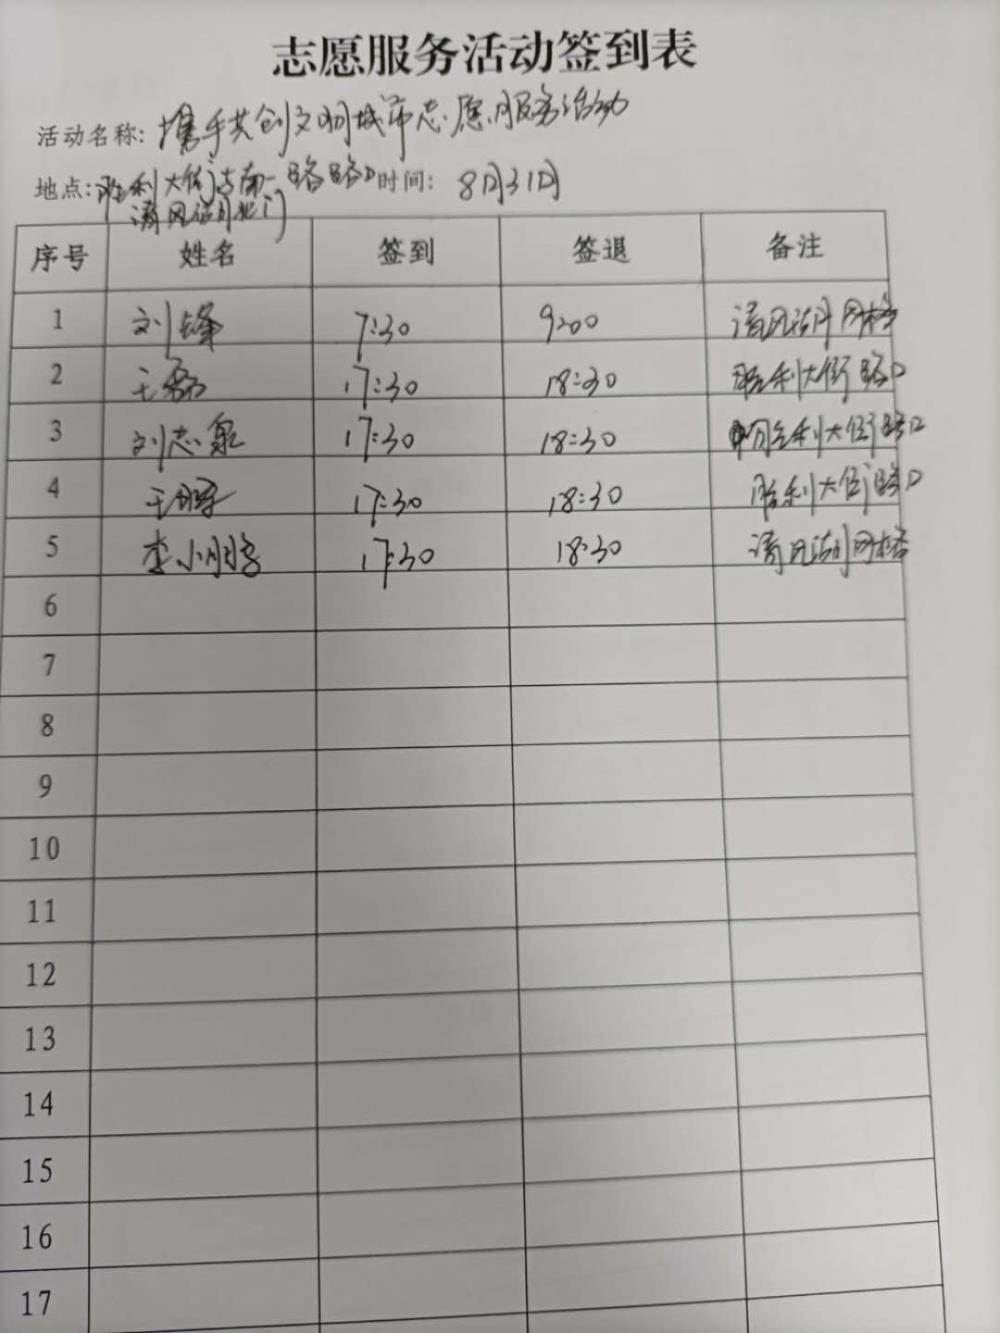 志愿服务活动签到表
活动名称: 携手共创文明城市志愿服务活动
地点: 胜利大街与南一路路口 时间: 8月31日
清风湖北门
序号 姓名 签到 签退 备注
1 刘锋 7:30 9:00 清风湖网格
2 王磊 17:30 18:30 胜利大街路口
3 刘志泉 17:30 18:30 胜利大街路口
4 王 17:30 18:30 胜利大街路口
5 李小鹏 17:30 18:30 清风湖网格
6
7
8
9
10
11
12
13
14
15
16
17